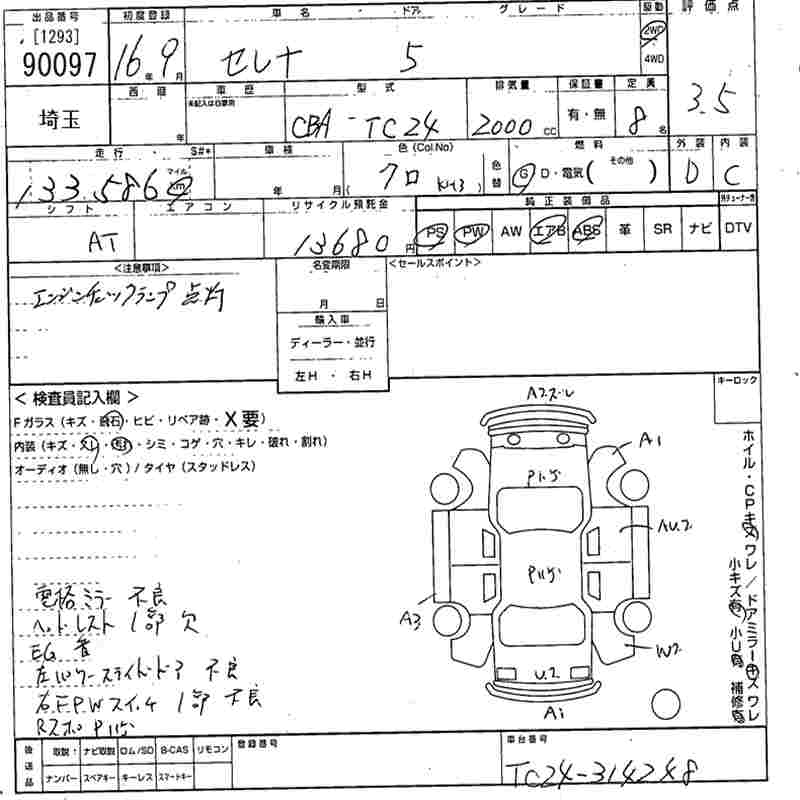 出品番号 初度登録 車名・ドア グレード 駆動 評価点
[1293] 2WD
90097 16年 9月 セレナ 5 4WD
埼玉 西暦 年 車歴 型式 排気量 保証書 定員 3.5
未記入は自家用
CBA - TC24 2000cc 有・無 8名
走行 S#* 車検 色(Col.No) 燃料 外装 内装
133,586 マイル km 年 月 クロ (KH3) 色替 G D・電気( その他 ) D C
シフト エアコン リサイクル預託金 純正装備品
AT 13680円 PS PW AW エアB ABS 革 SR ナビ DTV
<注意事項> 名変期限 <セールスポイント>
エンジンチェックランプ 点灯
月 日
輸入車
ディーラー・並行
左H ・ 右H
キーロック
< 検査員記入欄 > Aスズレ
Fガラス (キズ・飛石・ヒビ・リペア跡・X要)
内装 (キズ・スレ・汚れ・シミ・コゲ・穴・キレ・破れ・割れ) A1
オーディオ (無し・穴) / タイヤ (スタッドレス)
ホイル・CPキズワレ/ドアミラーキズワレ
小キズ有 小U有 補修有
AU2
電格ミラー 不良
ヘッドレスト 1部 欠 A3
EG 音 W2
左パワースライドドア 不良 U2
右F.P.Wスイッチ 1部 不良 A1
後送品 取説 ナビ取説 ロム/SD B-CAS リモコン 登録番号 車台番号
ナンバー スペアキー キーレス スマートキー TC24-314248